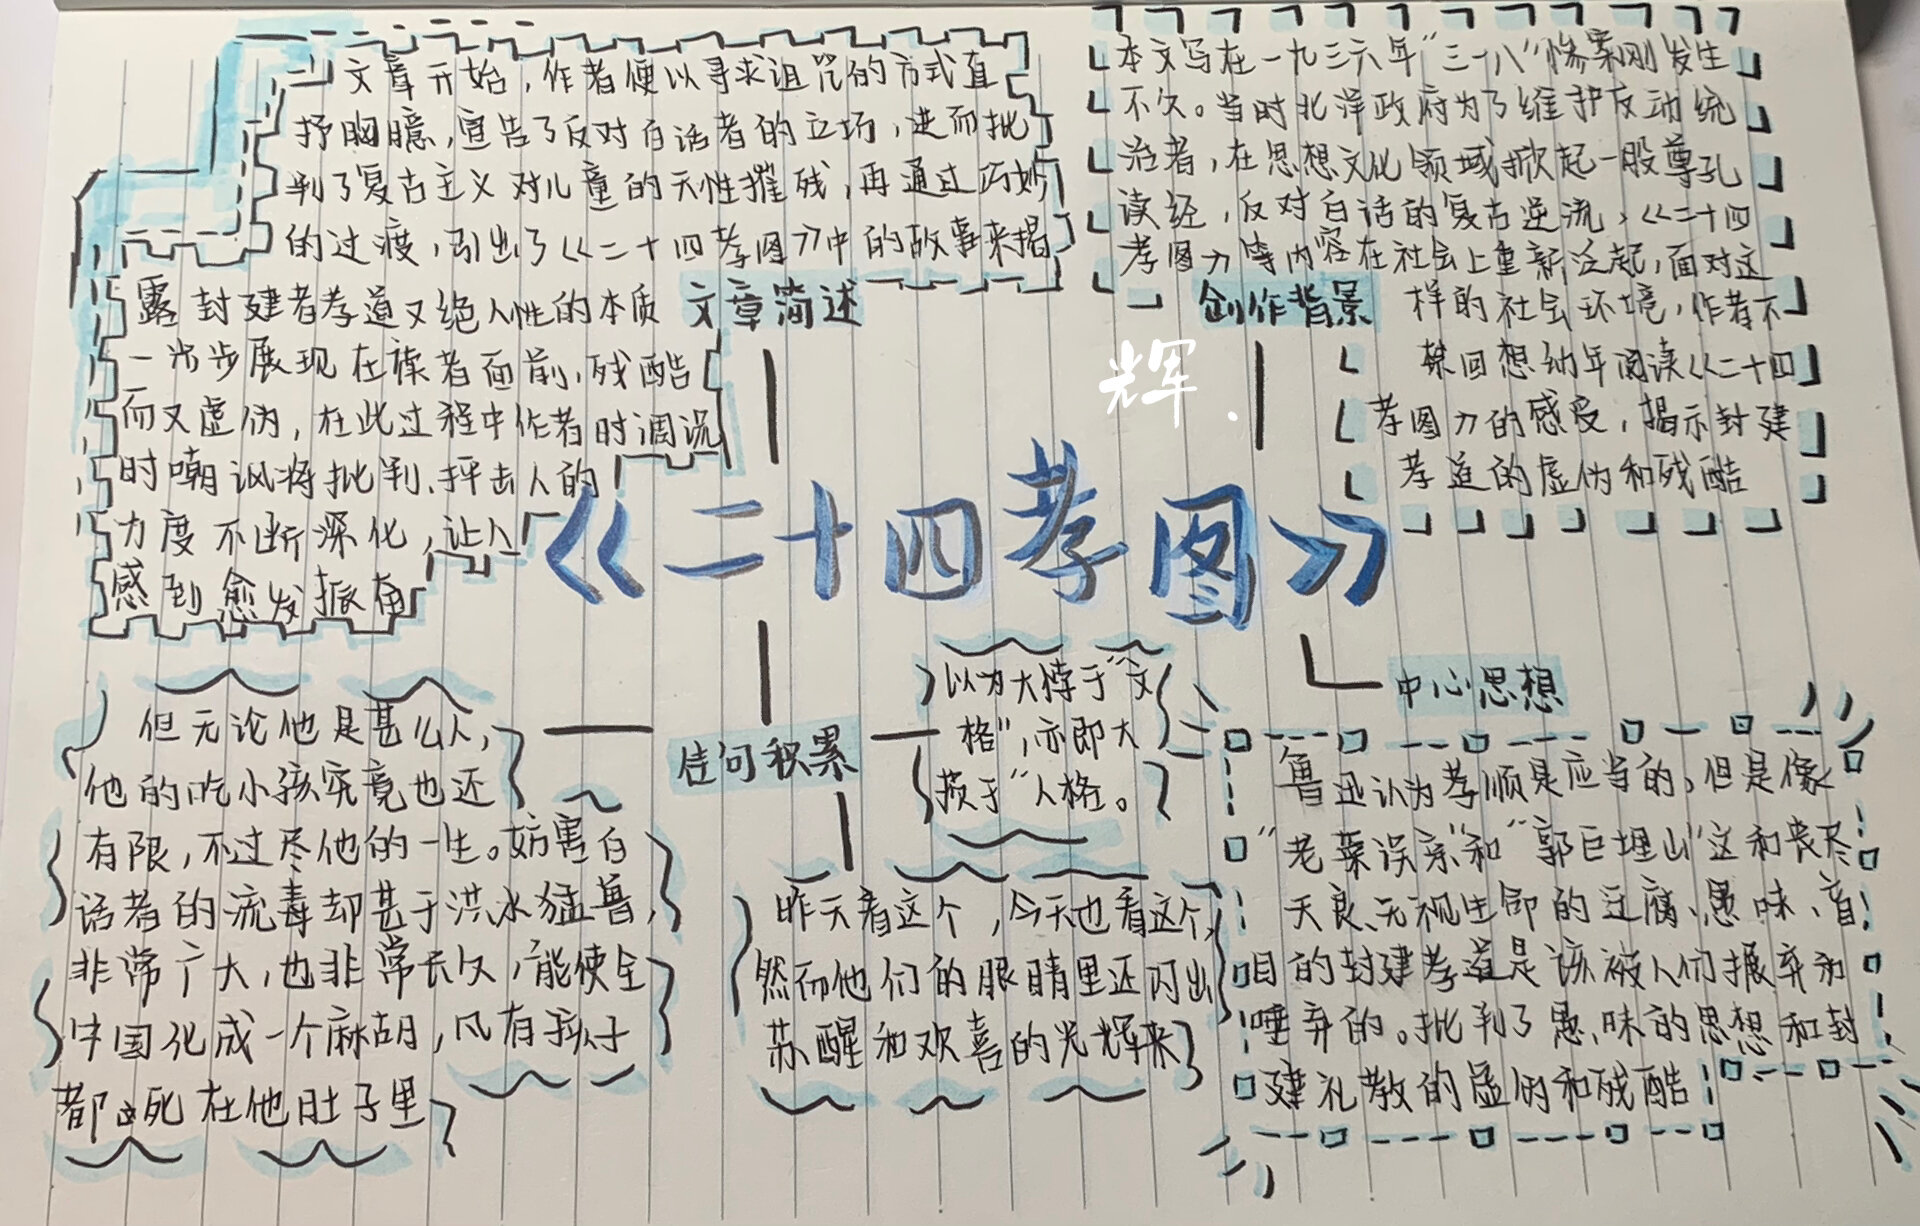 文章开始，作者便以寻求诅咒的方式直
抒胸臆，宣告了反对白话者的立场，进而批
判了复古主义对儿童的天性摧残，再通过巧妙
的过渡，引出了《二十四孝图》中的故事来揭
露封建者孝道又绝人性的本质
一步步展现在读者面前，残酷
而又虚伪，在此过程中作者时调侃
时嘲讽将批判、抨击人的
力度不断深化，让人
感到愈发振奋
文章简述
本文写在一九三六年"三一八"惨案刚发生
不久。当时北洋政府为了维护反动统
治者，在思想文化领域掀起一股尊孔
读经，反对白话的复古逆流，《二十四
孝图》等内容在社会上重新泛起，面对这
样的社会环境，作者不
禁回想幼年阅读《二十四
孝图》的感受，揭示封建
孝道的虚伪和残酷
创作背景
辉.
《二十四孝图》
佳句积累
但无论他是甚么人，
他的吃小孩究竟也还
有限，不过尽他的一生。妨害白
话者的流毒却甚于洪水猛兽，
非常广大，也非常长久，能使全
中国化成一个麻胡，凡有孩子
都死在他肚子里
以为大悖于"文
格"，亦即大
损于"人格。
昨天看这个，今天也看这个，
然而他们的眼睛里还闪出
苏醒和欢喜的光辉来
中心思想
鲁迅认为孝顺是应当的，但是像
"老莱误亲"和"郭巨埋山"这和丧尽
天良、无视生命的迂腐、愚昧、盲
目的封建孝道是该被人们摒弃和
唾弃的。批判了愚昧的思想和封
建礼教的虚伪和残酷